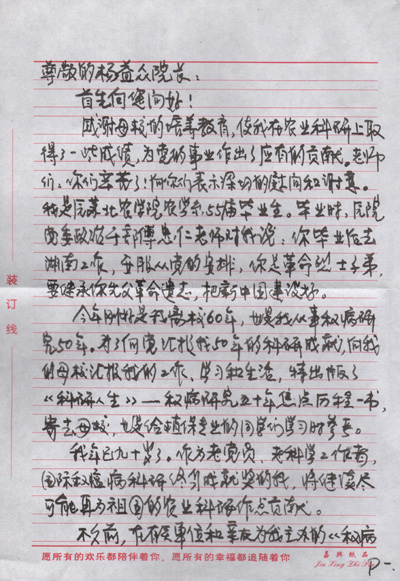 尊敬的杨益众院长:
首先向您问好!
感谢母校的培养教育,使我在农业科研上取
得了一些成绩,为党的事业作出了应有的贡献。老师
们,你们辛苦了!向你们表示深切的慰问和谢意。
我是原苏北农学院农学系55届毕业生。毕业时,原院
党委政治干部傅忠仁老师对我说:你毕业后去
湖南工作,要服从党的安排,你是革命烈士子弟,
要继承你父父革命遗志,把新中国建设好。
今年刚好是我离校60年,也是我从事稻病研
究50年。为了向党汇报我50年的科研成就,向我
的母校汇报我的工作、学习和生活,特出版了
《科研人生》—稻病研究五十年焦点历程一书,
寄去母校,也是给植保专业的同学们学习时参考。
我年已九十岁了。作为老党员、老科学工作者,
国际稻瘟病科研终身成就奖的我,将继续尽
可能再为祖国的农业科研作点贡献。
不久前,有有关单位和亲友为我主友的《稻病
装订线
愿所有的欢乐都陪伴着你,愿所有的幸福都追随着你
嘉兴纸品
Jia Xing Zhi Pin
P-